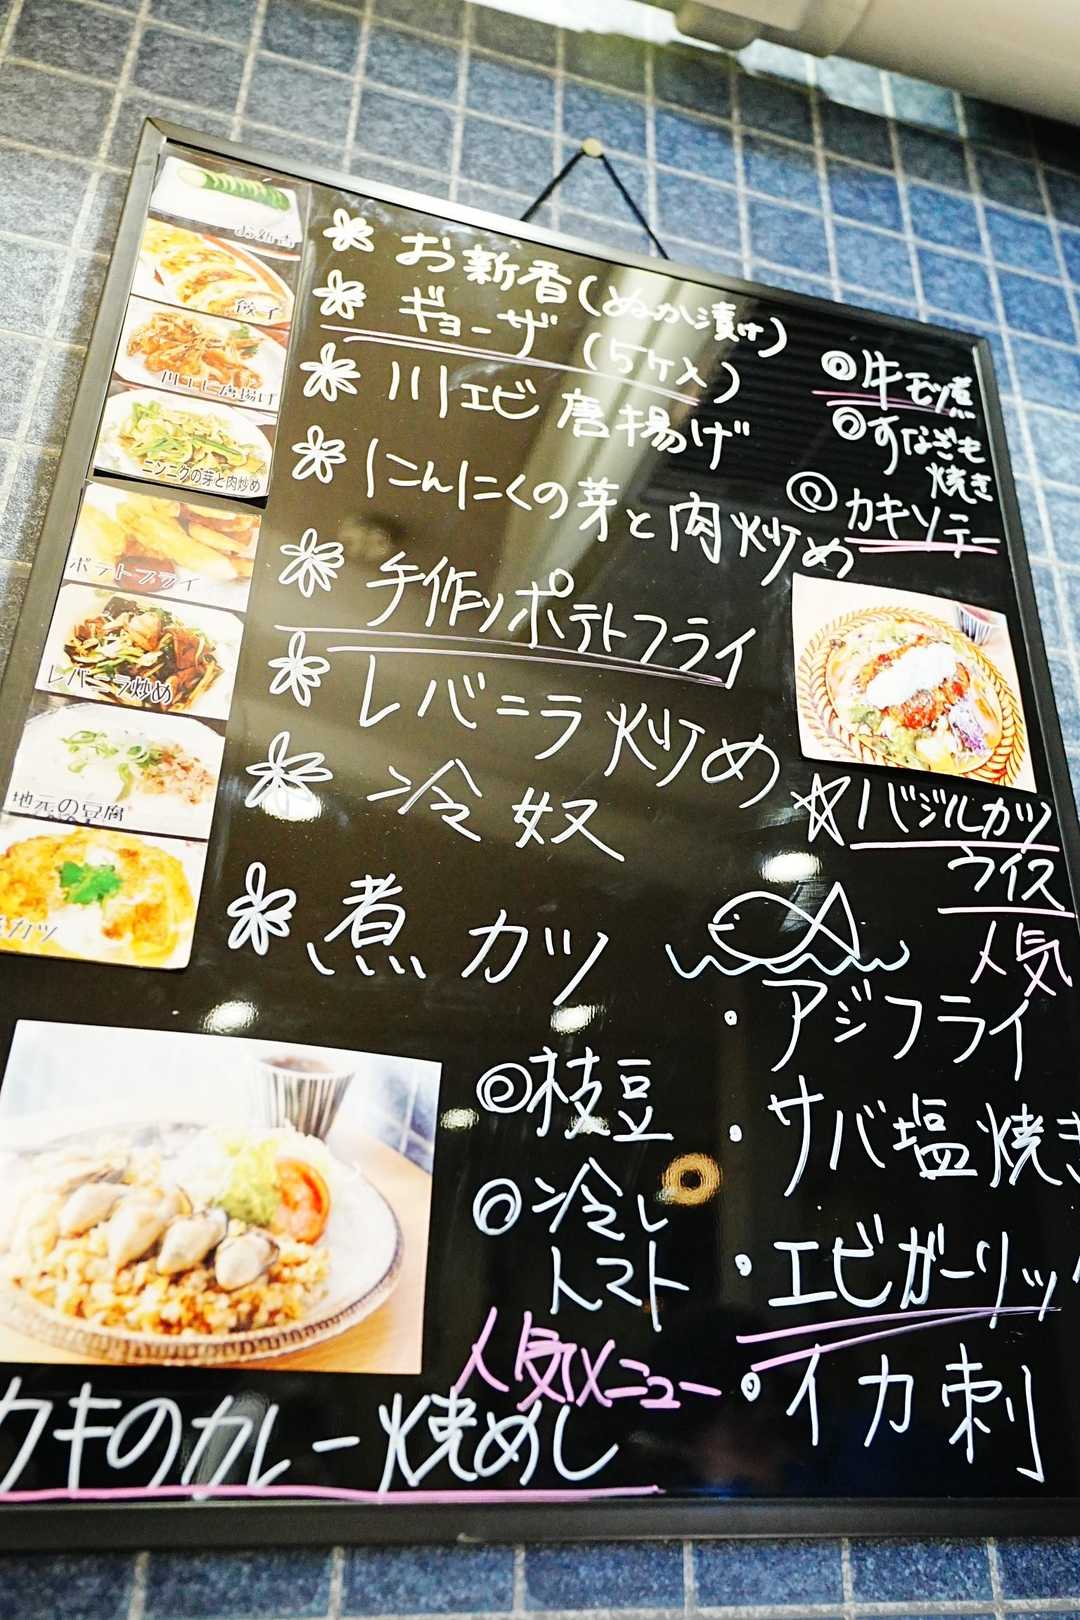 お新香(ぬか漬け)
ギョーザ(5ケ入)
川エビ唐揚げ
にんにくの芽と肉炒め
手作りポテトフライ
レバニラ炒め
冷奴
煮カツ
◎牛モツ煮
◎すなぎも
焼き
◎カキソテー
☆バジルカツ
ウイス
人気
・アジフライ
・サバ塩焼き
・エビガーリック
・イカ刺
◎枝豆
◎冷し
トマト
人気メニュー
カキのカレー焼めし
お新香
餃子
川エビ唐揚げ
ニンニクの芽と肉炒め
ポテトフライ
レバニラ炒め
地元の豆腐
カツ